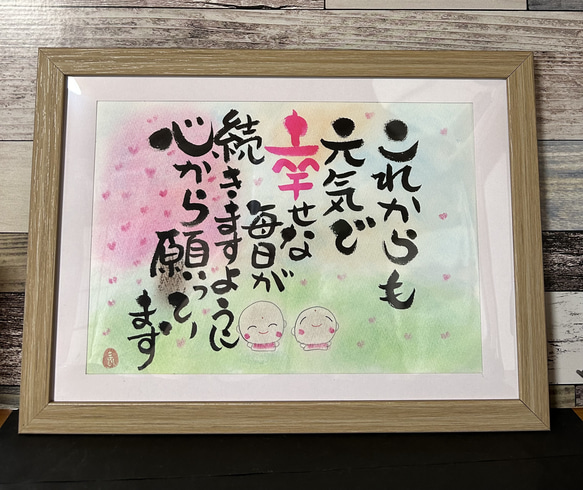 これからも
元気で
幸せな
毎日が
続きますように
心から
願って
います